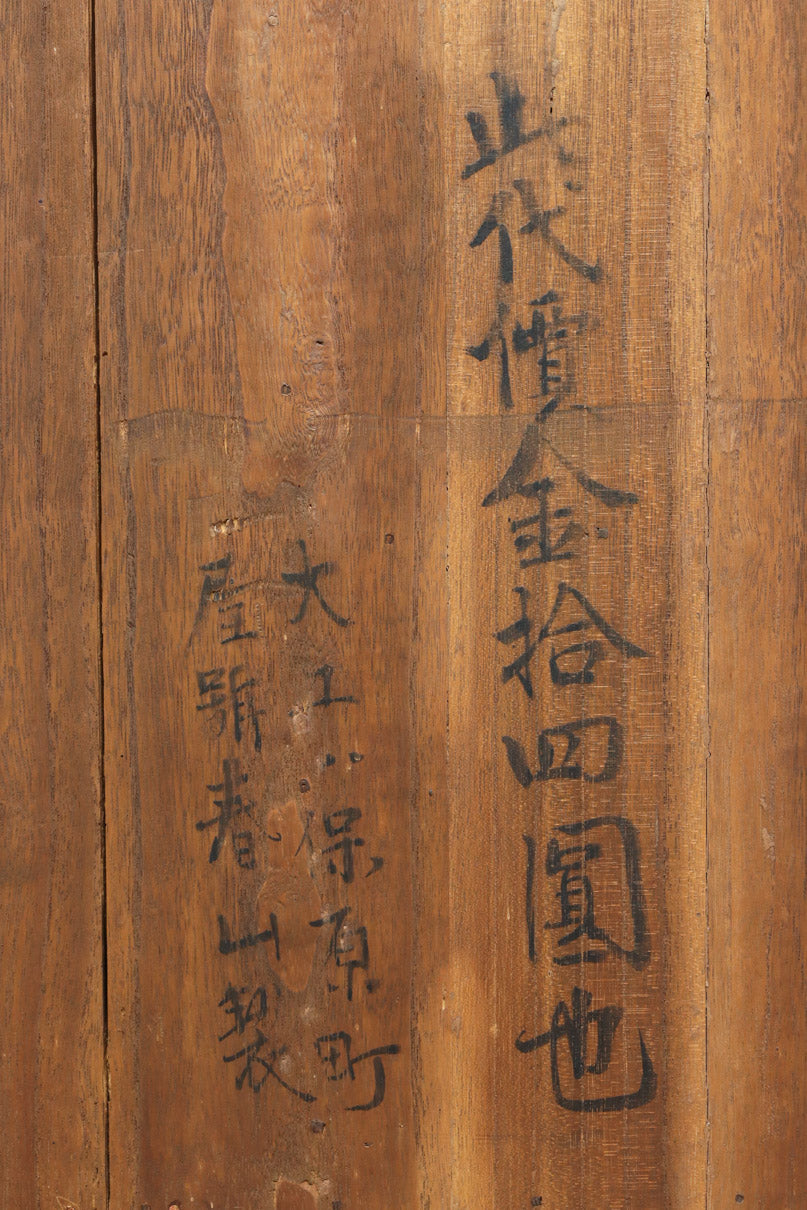 此代價金拾四圓也
大工ハ保原町
屋號春山製